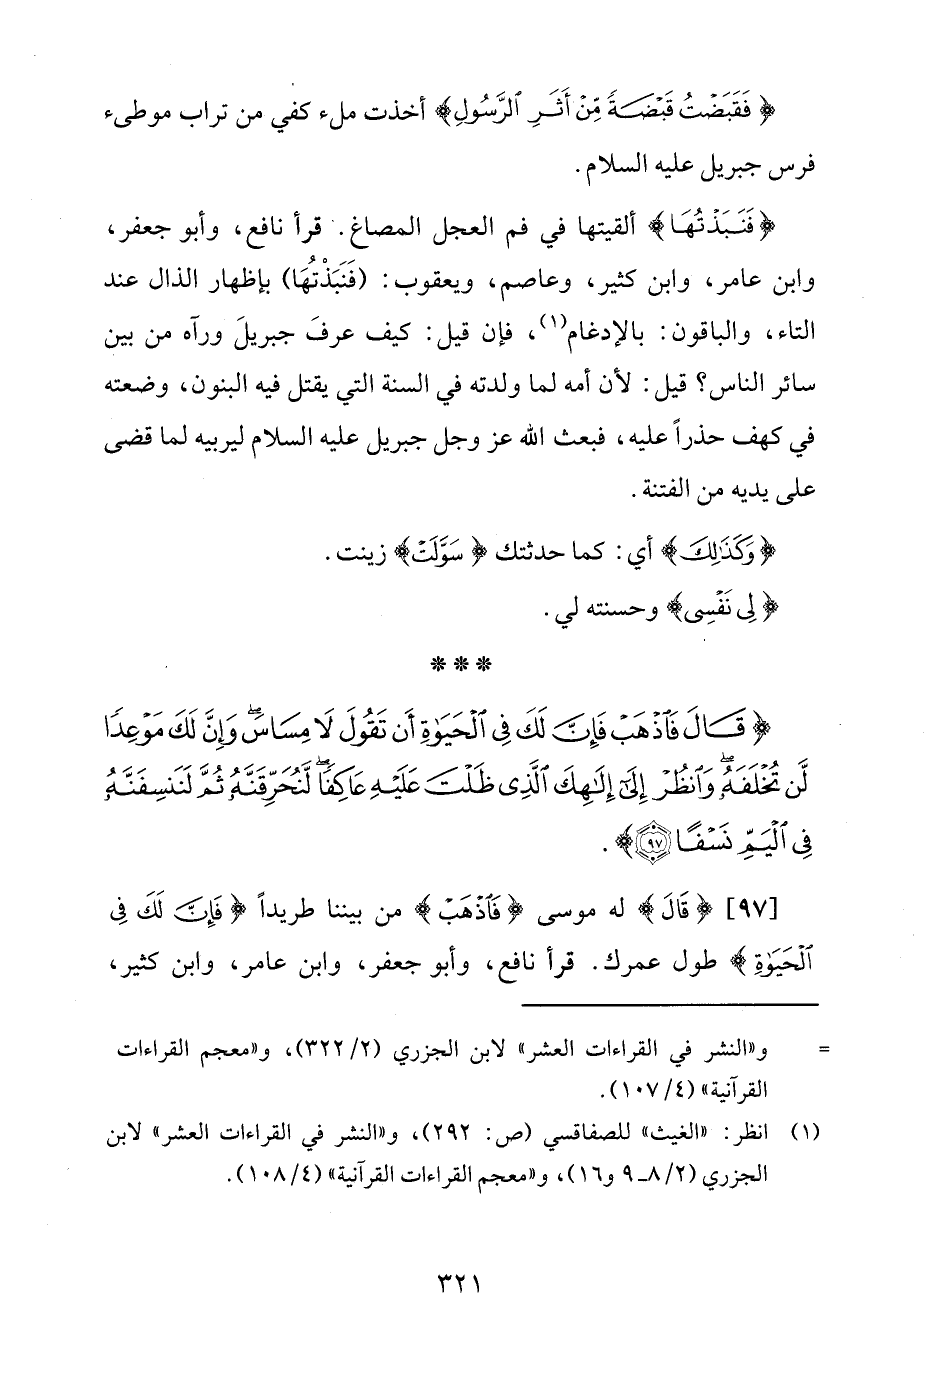 ﴿ فَقَبَضْتُ قَبْضَةً مِّنْ أَثَرِ ٱلرَّسُولِ﴾ أخذت ملء كفي من تراب موطىء
فرس جبريل عليه السلام.
﴿فَنَبَذْتُهَا﴾ ألقيتها في فم العجل المصاغ. قرأ نافع، وأبو جعفر،
وابن عامر، وابن كثير، وعاصم، ويعقوب: (فَنَبَذْتُهَا) بإظهار الذال عند
التاء، والباقون: بالإدغام(١)، فإن قيل: كيف عرفَ جبريلَ ورآه من بين
سائر الناس؟ قيل: لأن أمه لما ولدته في السنة التي يقتل فيه البنون، وضعته
في كهف حذراً عليه، فبعث الله عز وجل جبريل عليه السلام ليربيه لما قضى
على يديه من الفتنة.
﴿وَكَذَٰلِكَ﴾ أي: كما حدثتك ﴿ سَوَّلَتْ﴾ زينت.
﴿ لِى نَفْسِى﴾ وحسنته لي.
* * *
﴿ قَـالَ فَٱذْهَبْ فَإِنَّ لَكَ فِى ٱلْحَيَوٰةِ أَن تَقُولَ لَا مِسَاسَۖ وَإِنَّ لَكَ مَوْعِدًا
لَّن تُخْلَفَهُۥۖ وَٱنظُرْ إِلَىٰٓ إِلَٰهِكَ ٱلَّذِى ظَلْتَ عَلَيْهِ عَاكِفًاۖ لَّنُحَرِّقَنَّهُۥ ثُمَّ لَنَنسِفَنَّهُۥ
فِى ٱلْيَمِّ نَسْفًا ٩٧﴾.
[٩٧] ﴿قَالَ﴾ له موسى ﴿فَٱذْهَبْ﴾ من بيننا طريداً ﴿فَإِنَّ لَكَ فِى
ٱلْحَيَوٰةِ﴾ طول عمرك. قرأ نافع، وأبو جعفر، وابن عامر، وابن كثير،
= و«النشر في القراءات العشر» لابن الجزري (٢/ ٣٢٢)، و«معجم القراءات
القرآنية» (٤/ ١٠٧).
(١) انظر: «الغيث» للصفاقسي (ص: ٢٩٢)، و«النشر في القراءات العشر» لابن
الجزري (٢/ ٨ـ ٩ و١٦)، و«معجم القراءات القرآنية» (٤/ ١٠٨).
٣٢١